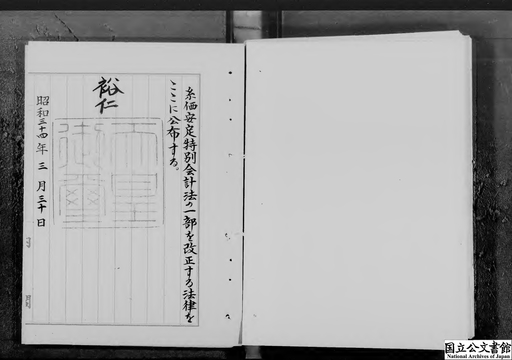 糸価安定特別会計法の一部を改正する法律を
ここに公布する。
裕仁
天皇
御璽
昭和三十四年三月三十日
国立公文書館
National Archives of Japan